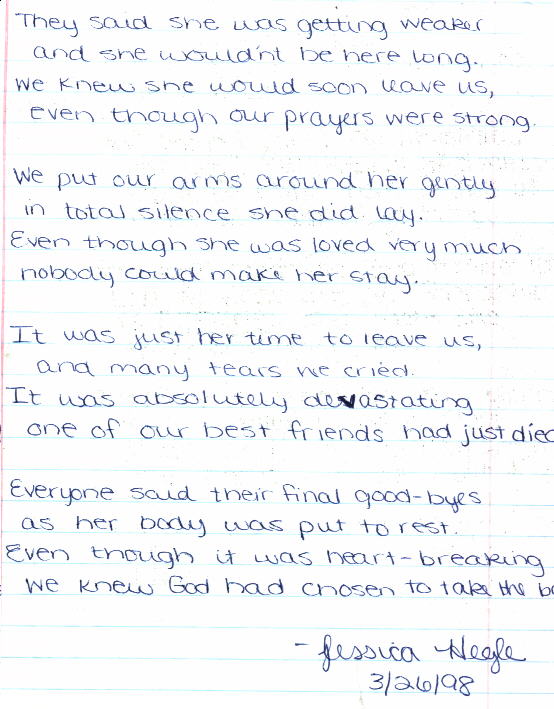 They said she was getting weaker
and she wouldn't be here long.
We knew she would soon leave us,
even though our prayers were strong.
We put our arms around her gently
in total silence she did lay.
Even though she was loved very much
nobody could make her stay.
It was just her time to leave us,
and many tears we cried.
It was absolutely devastating
one of our best friends had just died
Everyone said their final good-byes
as her body was put to rest.
Even though it was heart-breaking
we knew God had chosen to take the
- Jessica Hegle
3/26/98